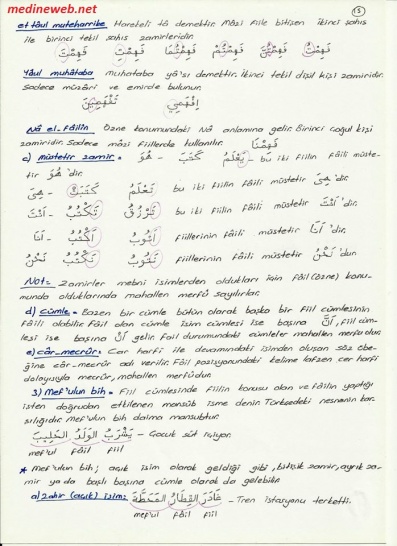 medineweb.net
5
et tâul muteharribe Hareketli tâ demektir. Mâzi fiile bitişen ikinci şahıs
ile birinci tekil şahıs zamirleridir.
فَهِمْتُ فَهِمْتُنَّ فَهِمْتُمْ فَهِمْتُمَا فَهِمْتِ فَهِمْتَ
Yâul muhâtaba muhataba yâ'sı demektir. İkinci tekil dişil kişi zamiridir.
Sadece müzâri ve emirde bulunur.
تَفْهَمِينَ اِفْهَمِي
Nâ el-fâilîn Özne konumundaki Nâ anlamına gelir. Birinci çoğul kişi
zamiridir. Sadece mâzi fiillerde kullanılır. فَهِمْنَا
c) müstetir zamir = هُوَ - كَتَبَ يَعْلَمُ - bu iki fiilin fâili müste-
tir هُوَ 'dir.
هِيَ - كَتَبَتْ تَعْلَمُ bu iki fiilin fâili müstetir هِيَ 'dir.
أَنْتَ - تَكْتُبُ تَرْزُقُ bu iki fiilin fâili müstetir أَنْتَ 'dir.
أَنَا - أَكْتُبُ أَتُوبُ fiillerinin fâili müstetir أَنَا 'dir.
نَحْنُ نَكْتُبُ نَتُوبُ fiillerinin fâili müstetir نَحْنُ 'dur.
Not= Zamirler mebni isimlerden oldukları için fâil (özne) konu-
munda olduklarında mahallen merfû sayılırlar.
d) Cümle = Bazen bir cümle bütün olarak başka bir fiil cümlesinin
fâili olabilir. Fâil olan cümle isim cümlesi ise başına أَنَّ, fiil cüm-
lesi ise başına أَنْ gelir. Fail durumundaki cümleler mahallen merfu olur.
e) câr-mecrûr= Car harfi ile devamındaki isimden oluşan söz öbe-
ğine câr-mecrûr adı verilir. Fâil pozisyonundaki kelime lafzen cer harfi
dolayısıyla mecrûr, mahallen merfûdur
3) Mef'ulun bih = Fiil cümlesinde fiilin konusu olan ve fâilin yaptığı
işten doğrudan etkilenen mansûb isme denir. Türkçedeki nesnenin kar-
şılığıdır. Mef'ulun bih daima mansubtur.
يَشْرَبُ الوَلَدُ الحَلِيبَ - Çocuk süt içiyor.
mef'ul fâil fiil
* Mef'ulun bih; açık isim olarak geldiği gibi, bitişik zamir, ayrık za-
mir ya da başlı başına cümle olarak da gelebilir.
a) Zahir (açık) isim: غَادَرَ القِطَارُ المَحَطَّةَ - Tren istasyonu terketti.
mef'ul fâil fiil